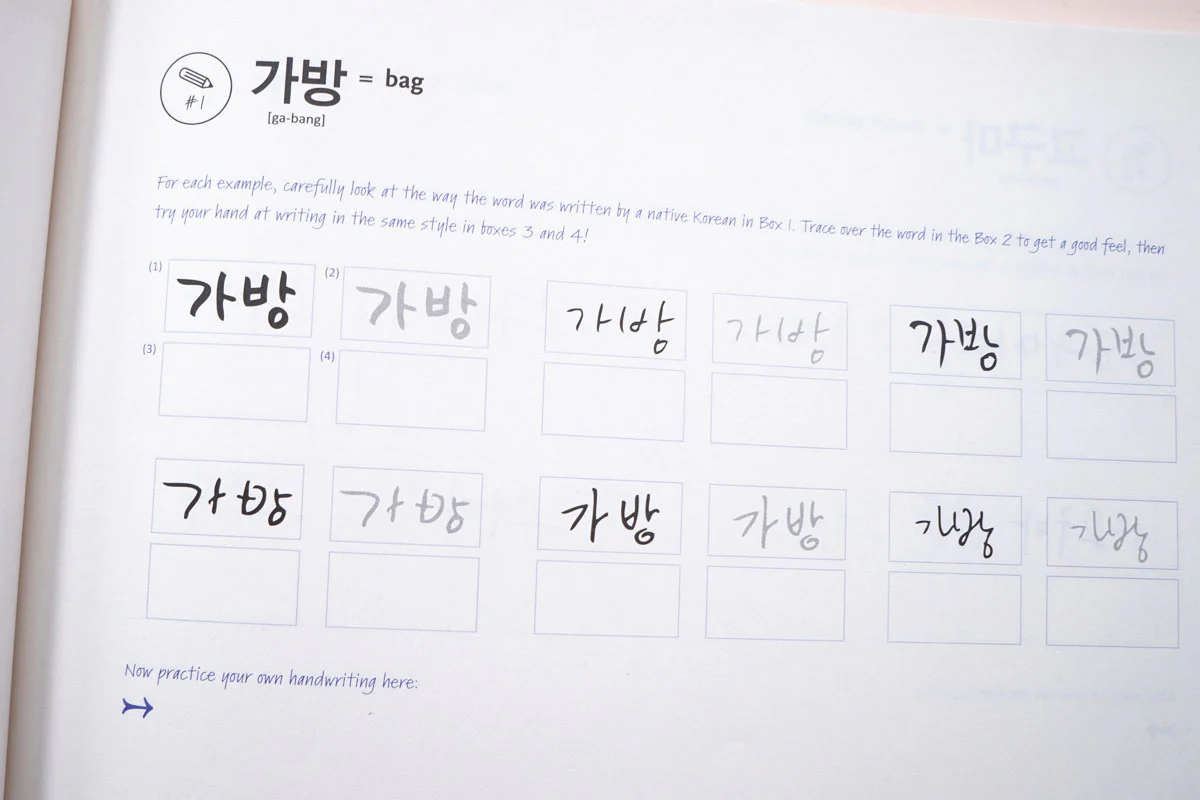 #1
가방 = bag
[ga-bang]
For each example, carefully look at the way the word was written by a native Korean in Box 1. Trace over the word in the Box 2 to get a good feel, then
try your hand at writing in the same style in boxes 3 and 4!
(1) 가방 (2) 가방 가방 가방 가방 가방
(3) (4)
가방 가방 가방 가방 가방 가방
Now practice your own handwriting here: